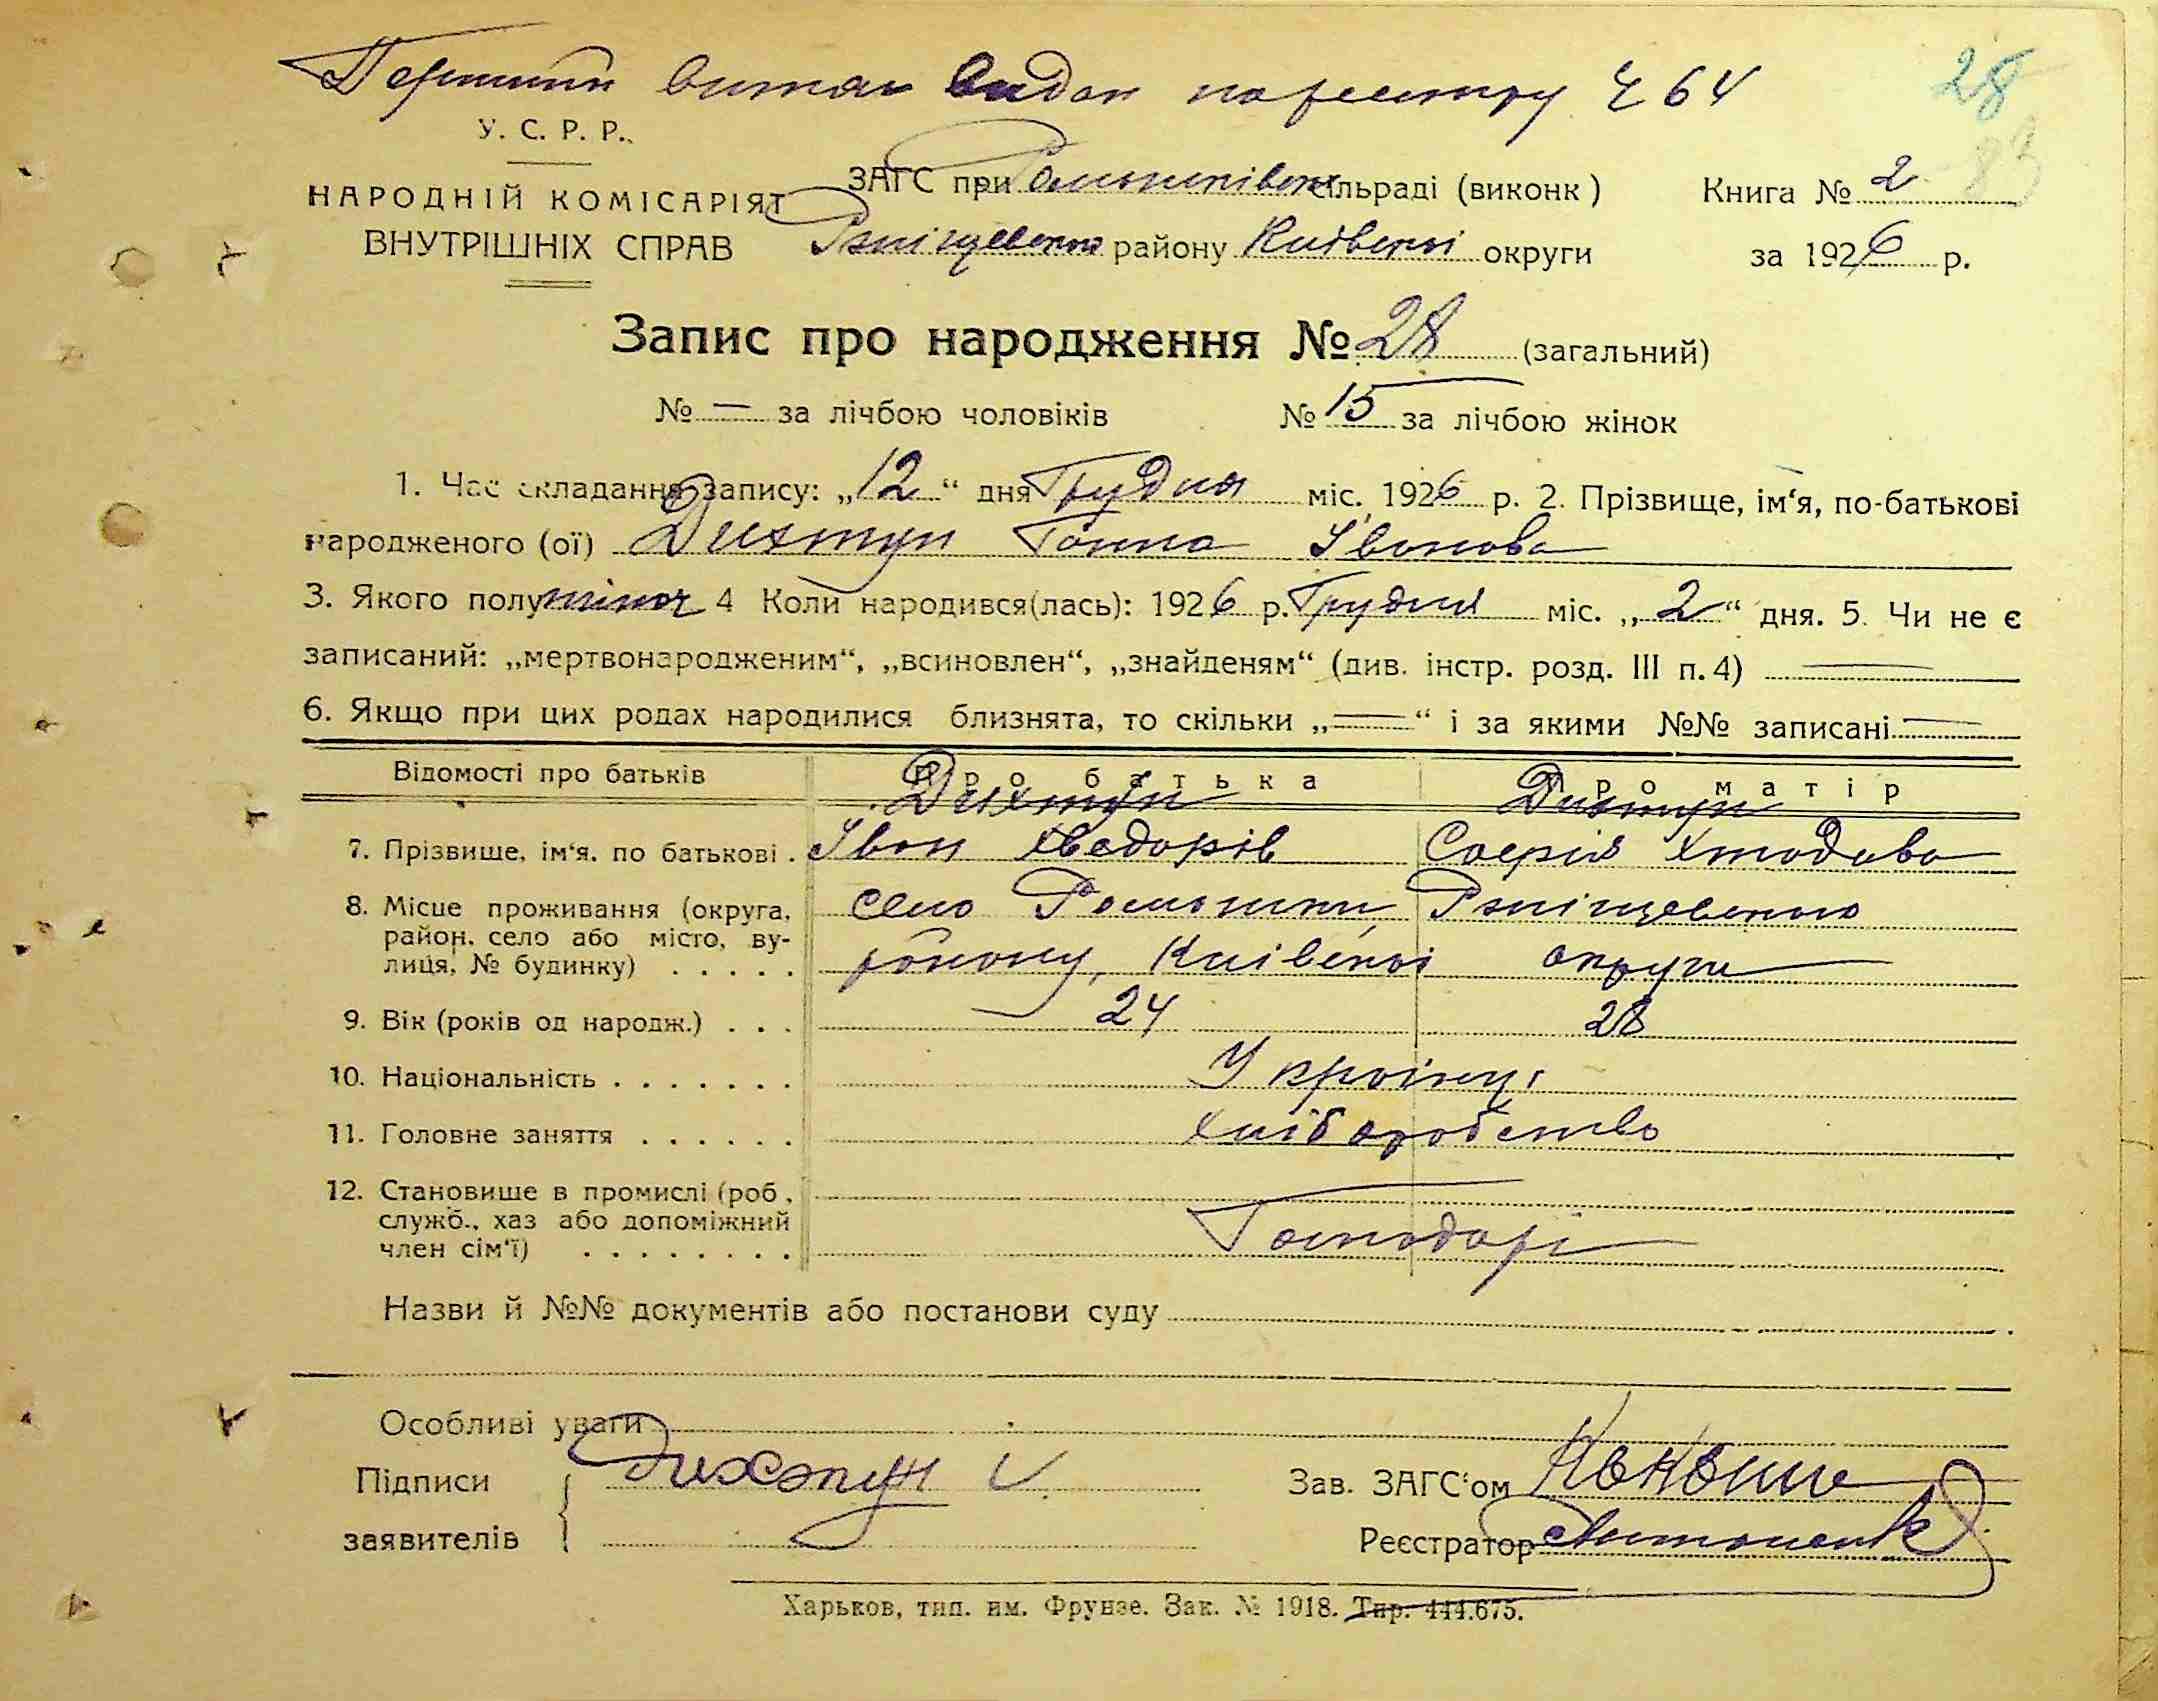 Перший витяг видан по реєстру Ч 64
28
83
У. С. Р. Р.
НАРОДНІЙ КОМІСАРІЯТ
ВНУТРІШНІХ СПРАВ
ЗАГС при Ромашківськ сільраді (виконк)
Книга № 2
Рзніщевськ району Київської округи
за 1926 р.
Запис про народження № 28 (загальний)
№ — за лічбою чоловіків № 15 за лічбою жінок
1. Час складання запису: „12“ дня Грудня міс. 1926 р. 2. Прізвище, ім‘я, по-батькові
народженого (ої) Дихтун Ганна Іванова
3. Якого полу жіноч 4 Коли народився(лась): 1926 р. Грудня міс. „2“ дня. 5. Чи не є
записаний: „мертвонародженим“, „всиновлен“, „знайденям“ (див. інстр. розд. III п. 4) —
6. Якщо при цих родах народилися близнята, то скільки „—“ і за якими №№ записані —
Відомості про батьків Про батька Про матір
Дихтун Дихтун
7. Прізвище, ім‘я, по батькові . Іван Хведорів Софія Хтодова
8. Місце проживання (округа, село Ромашки, Рзніщевського
район, село або місто, ву-
лиця, № будинку) . . . . . району, Київської округи
9. Вік (років од народж.) . . . 24 28
10. Національність . . . . . . . Українці
11. Головне заняття . . . . . . хліборобство
12. Становище в промислі (роб.,
служб., хаз або допоміжний Господарі
член сім‘ї) . . . . . . . .
Назви й №№ документів або постанови суду
Особливі уваги
Підписи Дихтун І. Зав. ЗАГС‘ом
заявителів Реєстратор
Харьков, тип. им. Фрунзе. Зак. № 1918. Тир. 444.675.